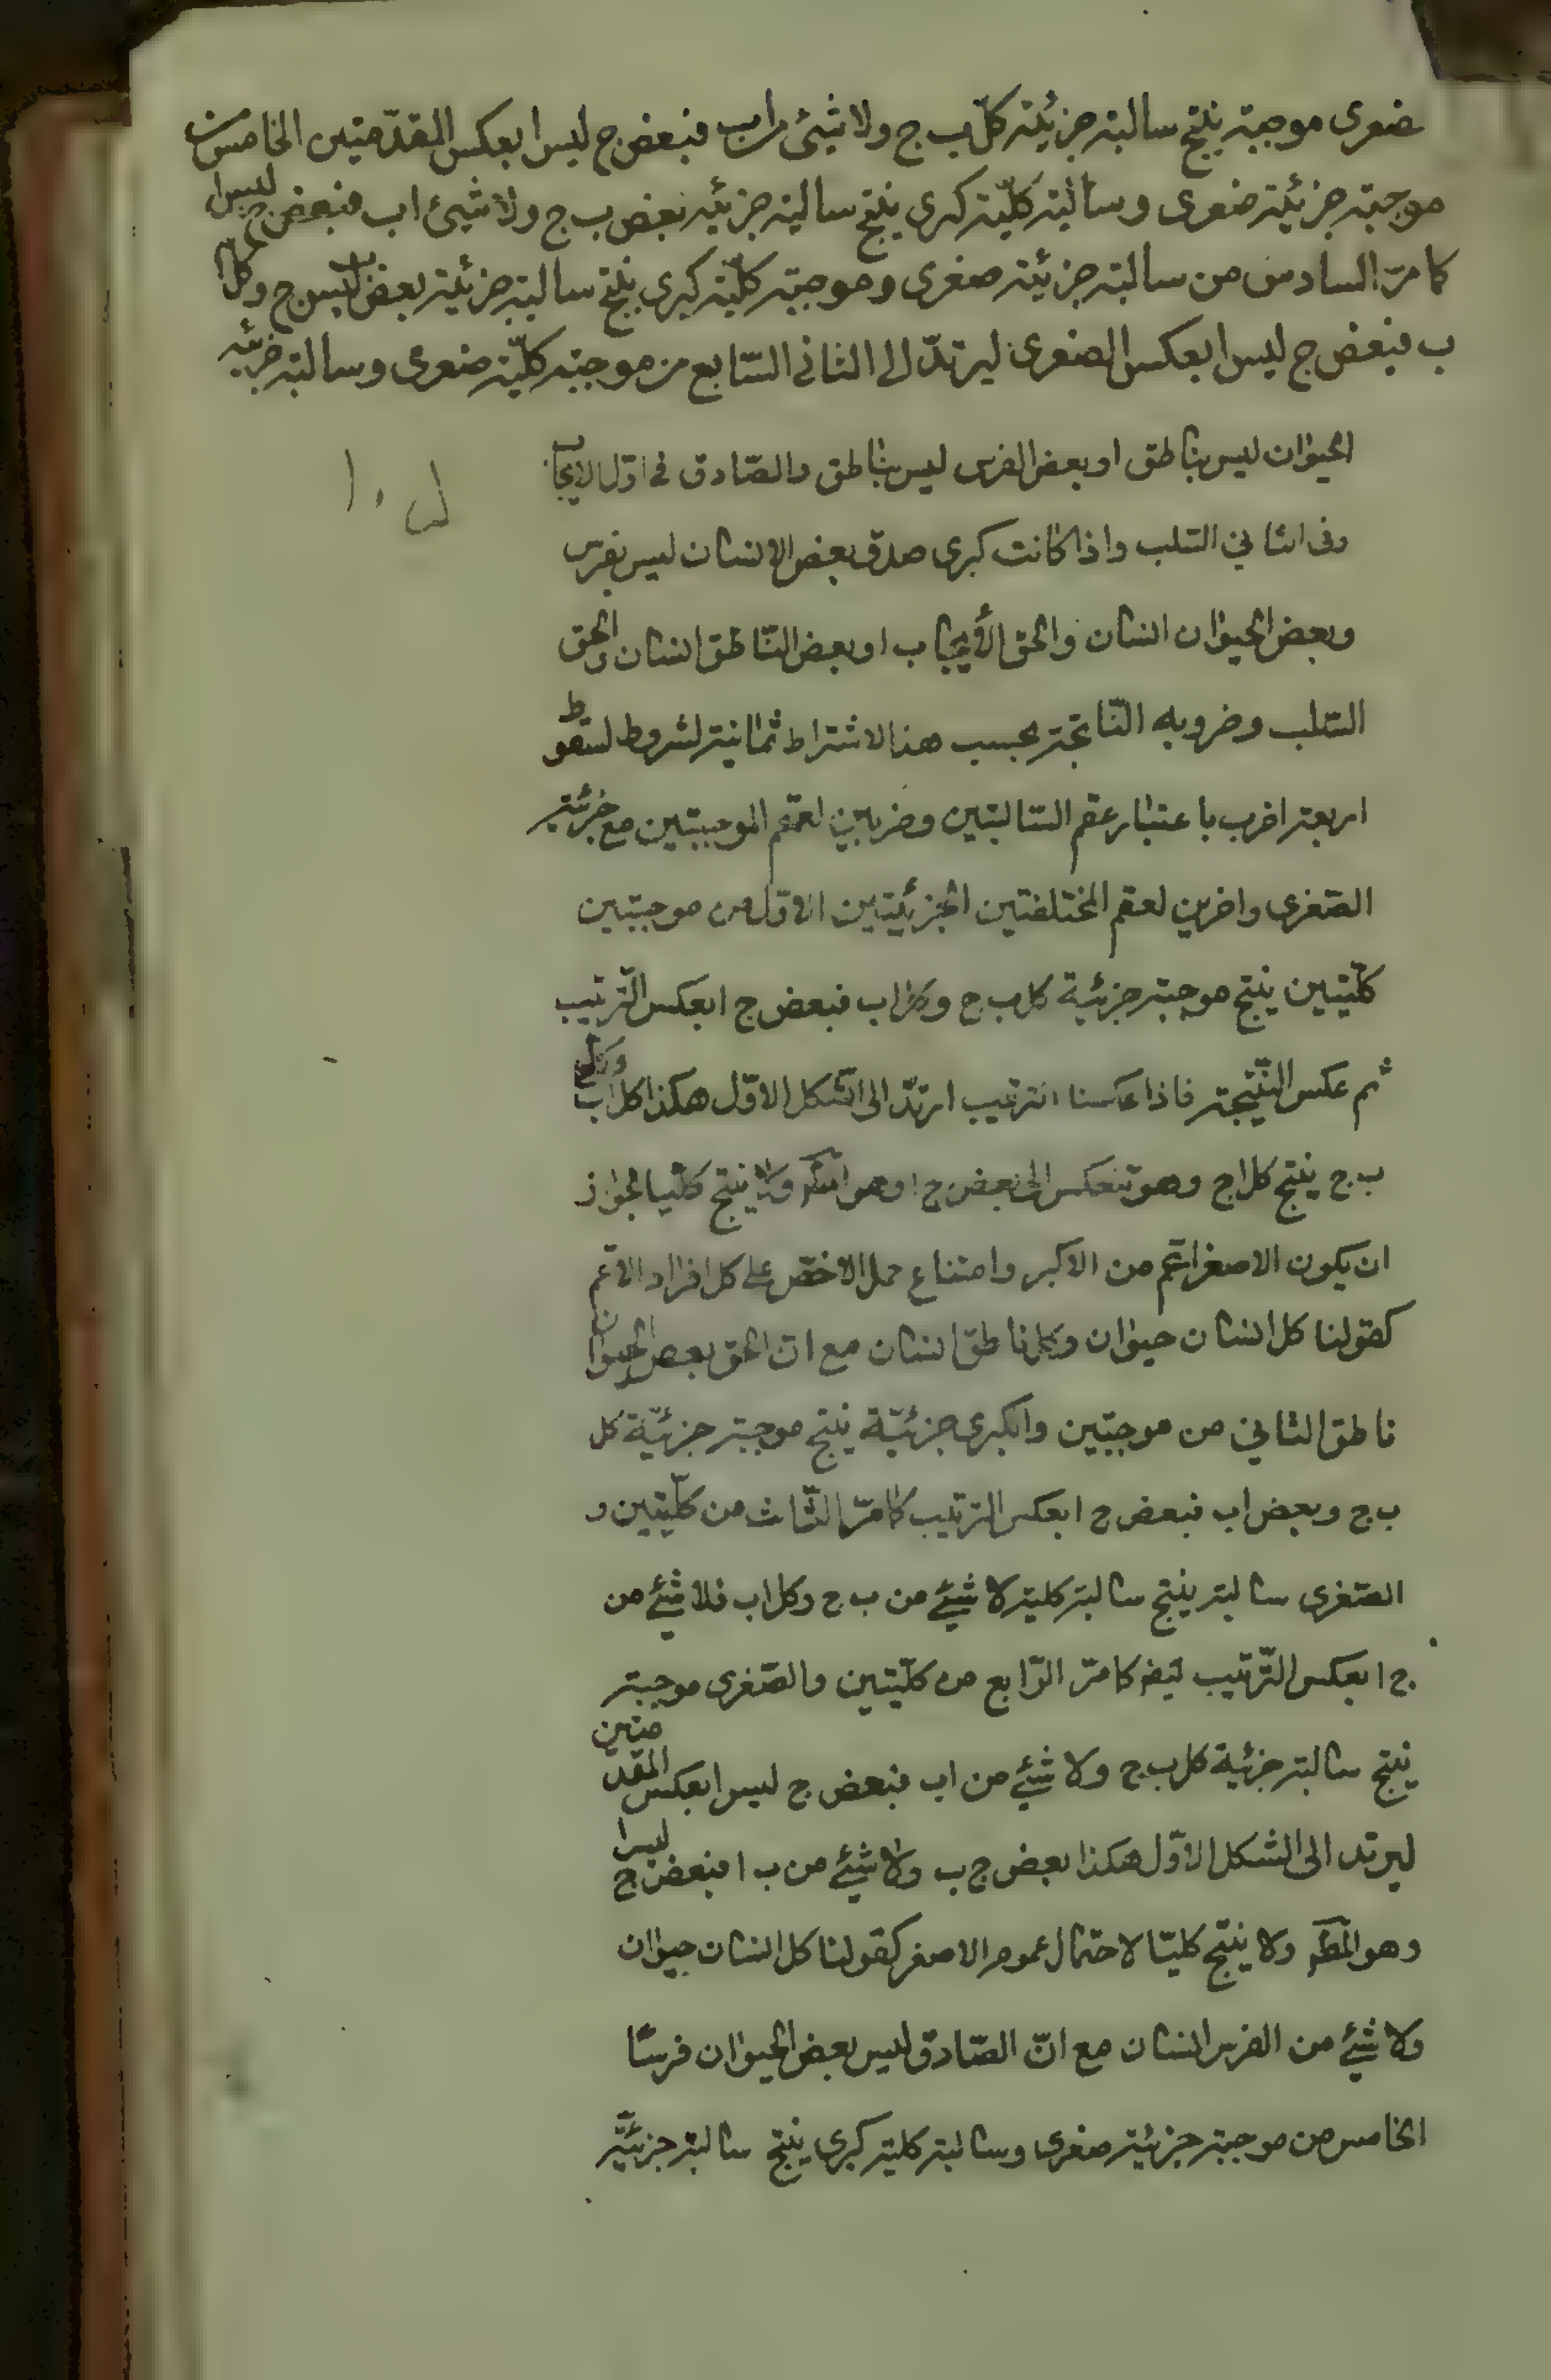 صغرى موجبة ينتج سالبة جزئية كلّ ب ج ولا شيئ من اب فبعض ج ليس ا بعكس المقدّمتين الخامس من
موجبة جزئية صغرى وسالبة كلّية كبرى ينتج سالبة جزئية بعض ب ج ولا شيئ اب فبعض ج ليس ا
كما مرّ السادس من سالبة جزئية صغرى وموجبة كلّية كبرى ينتج سالبة جزئية بعض ب ليس ج وكل ا
ب فبعض ج ليس ا بعكس الصغرى ليرتدّ الى الثانى السّابع من موجبة كلّية صغرى وسالبة جزئية
الحيوان ليس بناطق او بعض الفرس ليس بناطق والصّادق فى اوّل الايجاب
وفى الثانى السّلب واذا كانت كبرى صدق بعض الانسان ليس بفرس
وبعض الحيوان انسان والحق الايجاب او بعض النّاطق انسان والحق
السّلب وضروبه النّاتجة بحسب هذا الاشتراط ثمانية لشروط لسقوط
اربعة اضرب باعتبار عقم السّالبتين وضربين لعقم الموجبتين مع جزئية
الصّغرى واخرين لعقم المختلفتين الجزئيتين الاوّل من موجبتين
كلّيتين ينتج موجبة جزئية كل ب ج وكل اب فبعض ج ا بعكس التّرتيب
ثم عكس النّتيجة فاذا عكسنا الترتيب ارتدّ الى الشكل الاوّل هكذا كل اب وكل
ب ج ينتج كل ا ج وهو تنعكس الى بعض ج ا وهو المطـ ولا ينتج كلّيا لجواز
ان يكون الاصغر اعّم من الاكبر وامتناع حمل الاخصّ على كل افراد الاعّم
كقولنا كل انسان حيوان وكل ناطق انسان مع انّ الحق بعض الحيوان
ناطق الثانى من موجبتين والكبرى جزئيّة ينتج موجبة جزئيّة كل
ب ج وبعض اب فبعض ج ا بعكس الترتيب كما مرّ الثّالث من كلّيتين و
الصّغرى سالبة ينتج سالبة كلية لا شيئ من ب ج وكل اب فلا شيئ من
ج ا بعكس التّرتيب ايضا كما مرّ الرّابع من كلّيتين والصّغرى موجبة
ينتج سالبة جزئية كل ب ج ولا شيئ من اب فبعض ج ليس ا بعكس المقدّمتين
ليرتد الى الشكل الاوّل هكذا بعض ج ب ولا شيئ من ب ا فبعض ج ليس ا
وهو المطـ ولا ينتج كليّا لاحتمال عموم الاصغر كقولنا كل انسان حيوان
ولا شيئ من الفرس انسان مع انّ الصّادق ليس بعض الحيوان فرسًا
الخامس من موجبة جزئية صغرى وسالبة كلية كبرى ينتج سالبة جزئيّة